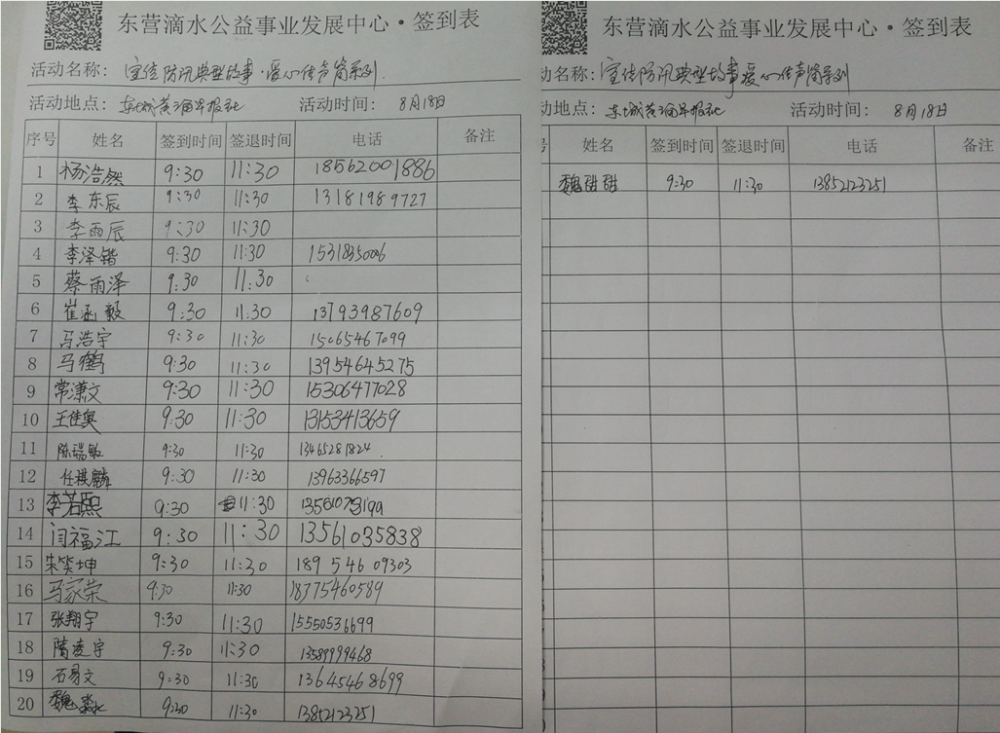 东营滴水公益事业发展中心·签到表
活动名称：宣传防汛典型故事·爱心传声筒系列
活动地点：东城黄河口早报社 活动时间：8月18日
序号 姓名 签到时间 签退时间 电话 备注
1 杨浩然 9:30 11:30 18562001886
2 李东辰 9:30 11:30 13181989727
3 李雨辰 9:30 11:30
4 李泽锴 9:30 11:30 15318350006
5 蔡雨泽 9:30 11:30
6 崔函毅 9:30 11:30 13793987609
7 马浩宇 9:30 11:30 15065467099
8 马鹤 9:30 11:30 13954645275
9 常潇文 9:30 11:30 15306477028
10 王佳奥 9:30 11:30 13153413659
11 陈瑞敏 9:30 11:30 13465281824
12 任祺麟 9:30 11:30 13963366597
13 李若熙 9:30 11:30
14 闫福江 9:30 11:30 13561035838
15 宋笑坤 9:30 11:30 189 546 09303
16 马家荣 9:30 11:30 18775460589
17 张翔宇 9:30 11:30 15550536699
18 隋凌宇 9:30 11:30 13589999468
19 石易文 9:30 11:30 13645468699
20 魏 9:30 11:30 13852123251
东营滴水公益事业发展中心·签到表
动名称：宣传防汛典型故事爱心传声筒系列
动地点：东城黄河口早报社 活动时间：8月18日
号 姓名 签到时间 签退时间 电话 备注
魏甜甜 9:30 11:30 13852123251